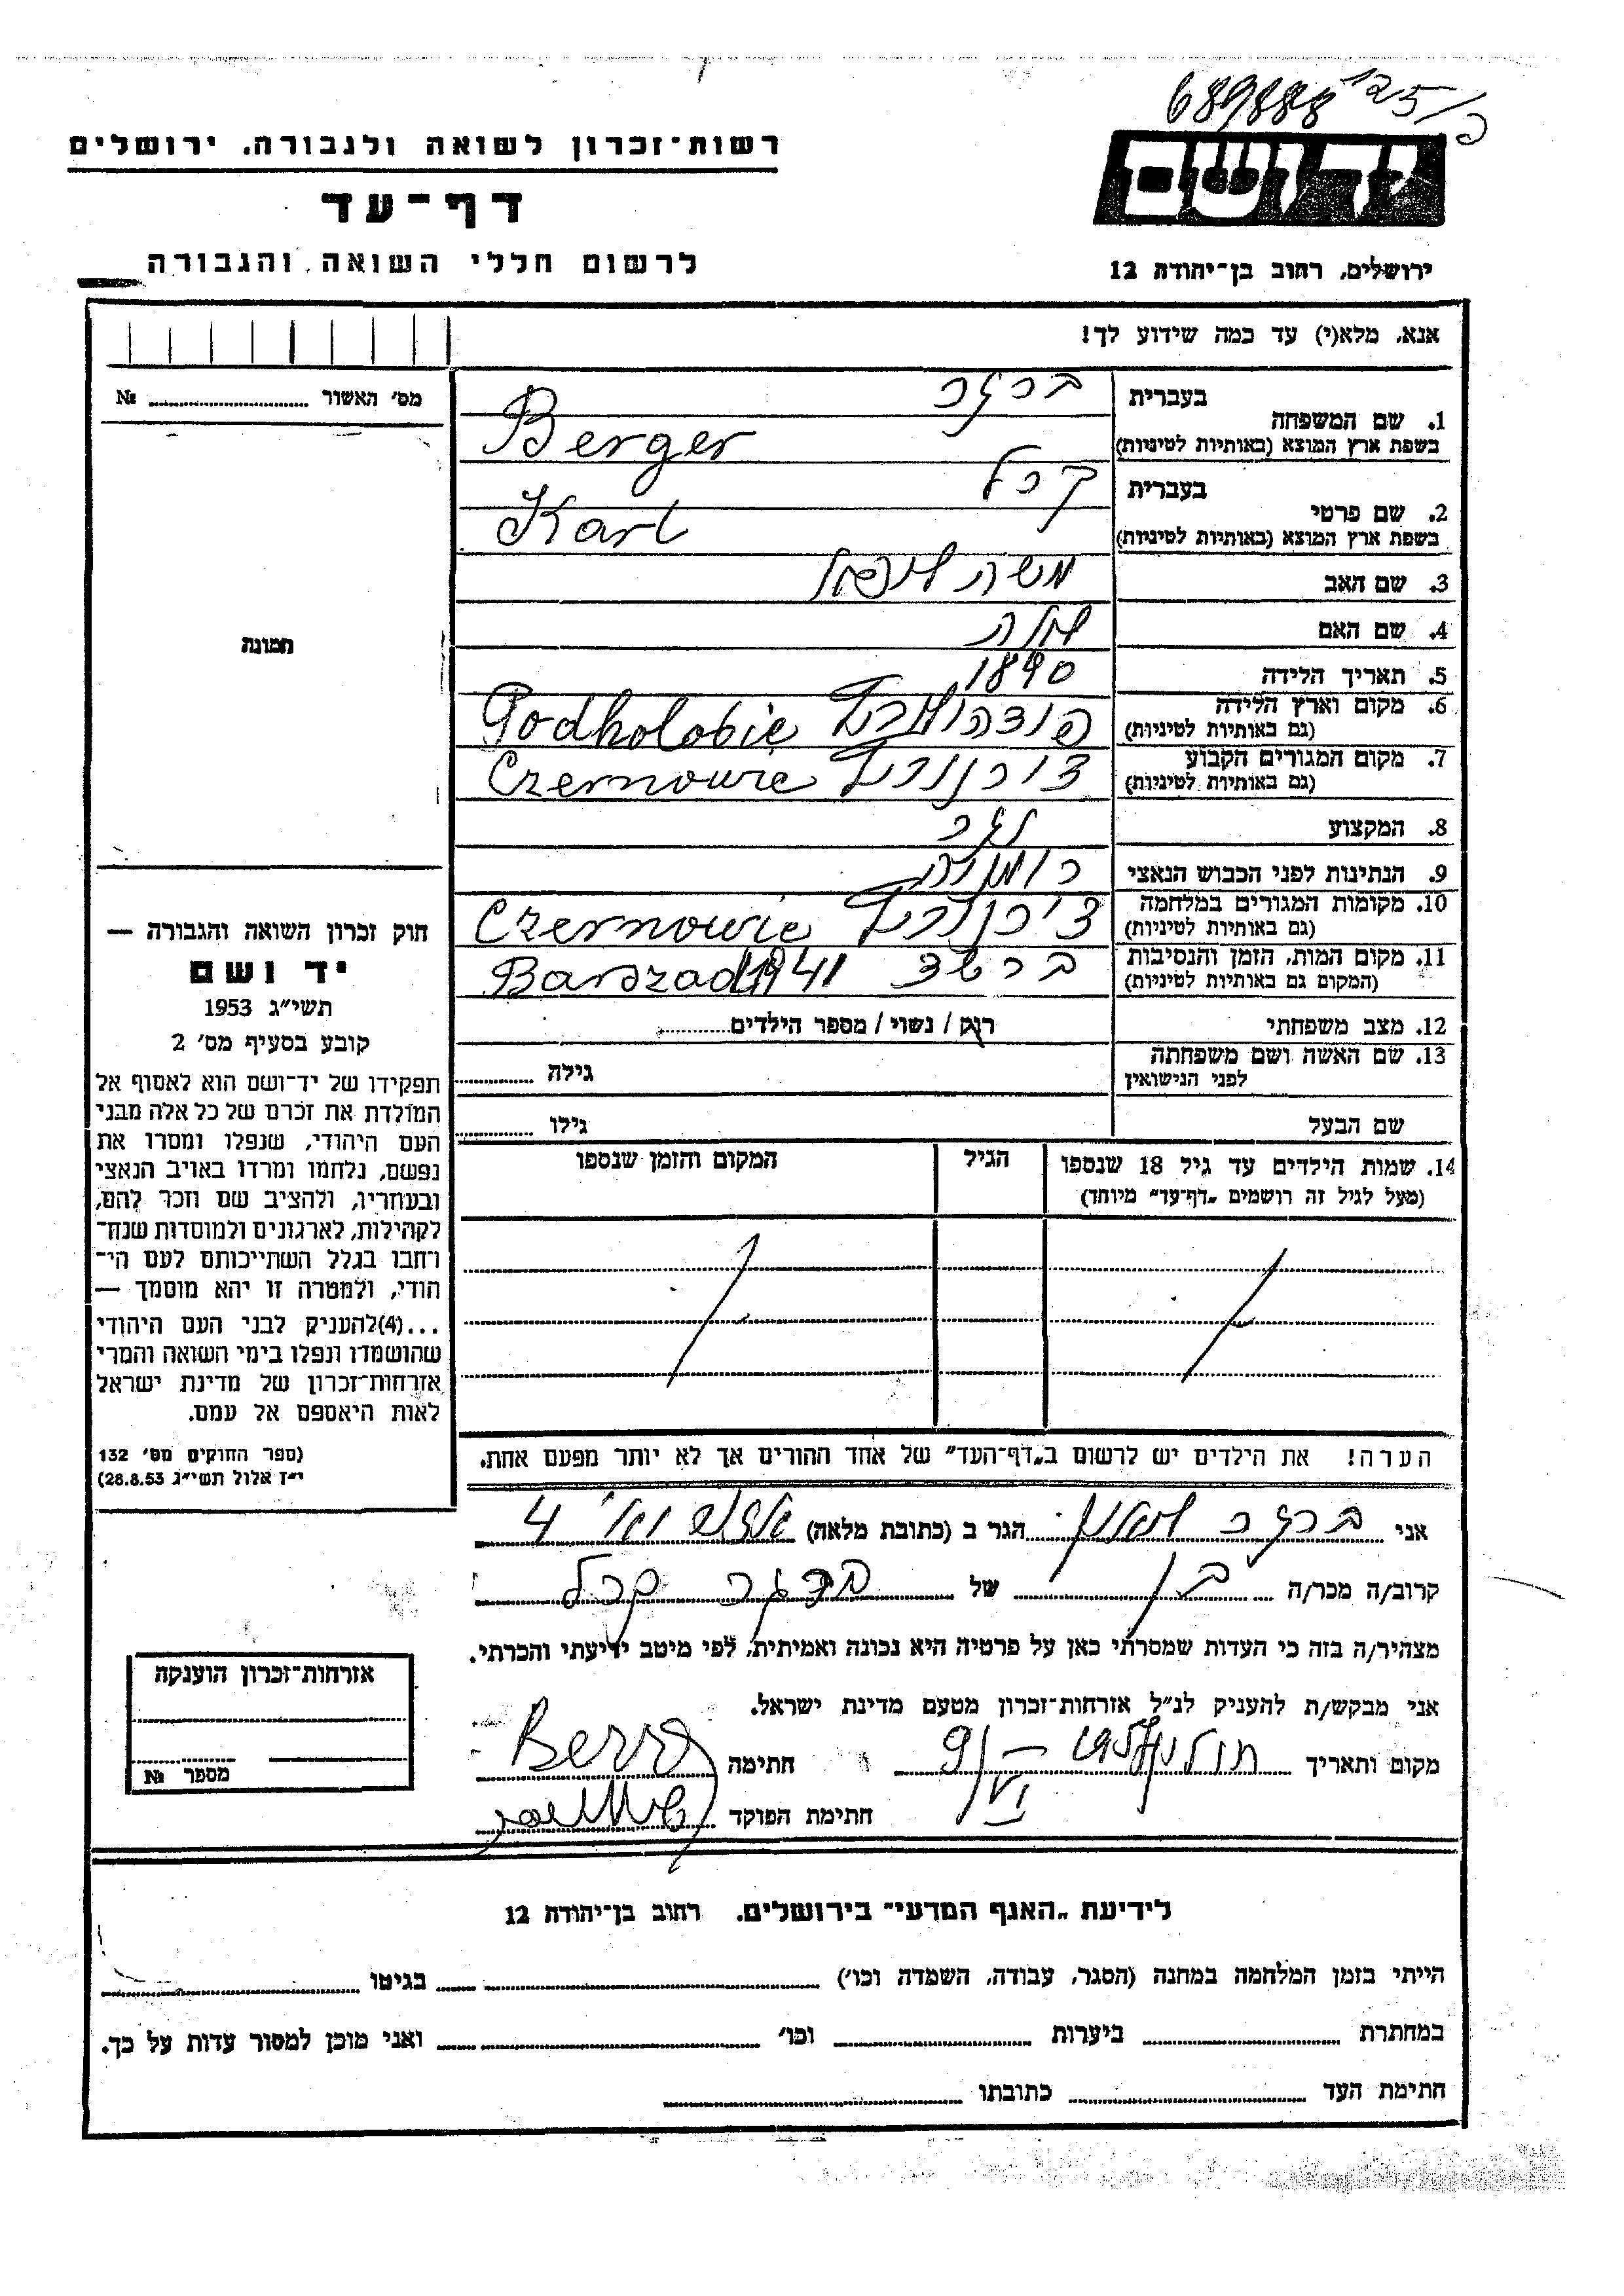 689888 125/כ
רשות־זכרון לשואה ולגבורה, ירושלים
דף־עד
לרשום חללי השואה והגבורה
יד ושם
ירושלים, רחוב בן־יהודה 12
אנא, מלא(י) עד כמה שידוע לך!
מס׳ האשור № 
תמונה
בעברית ברגר
1. שם המשפחה
בשפת ארץ המוצא (באותיות לטיניות) Berger
בעברית קרל
2. שם פרטי
בשפת ארץ המוצא (באותיות לטיניות) Karl
3. שם האב משה
4. שם האם
5. תאריך הלידה 1890
6. מקום וארץ הלידה
(גם באותיות לטיניות) Podholobie
7. מקום המגורים הקבוע
(גם באותיות לטיניות) צ׳רנוביץ Czernowie
8. המקצוע
9. הנתינות לפני הכבוש הנאצי רומניה
10. מקומות המגורים במלחמה
(גם באותיות לטיניות) צ׳רנוביץ Czernowie
11. מקום המות, הזמן והנסיבות
(המקום גם באותיות לטיניות) ברשד Barszad 1941
12. מצב משפחתי רווק / נשוי / מספר הילדים
13. שם האשה ושם משפחתה
לפני הנישואין גילה
שם הבעל גילו
14. שמות הילדים עד גיל 18 שנספו הגיל המקום והזמן שנספו
(מעל לגיל זה רושמים „דף־עד״ מיוחד)
הערה! את הילדים יש לרשום ב„דף־העד״ של אחד ההורים אך לא יותר מפעם אחת.
חוק זכרון השואה והגבורה —
יד ושם
תשי״ג 1953
קובע בסעיף מס׳ 2
תפקידו של יד־ושם הוא לאסוף אל
המולדת את זכרם של כל אלה מבני
העם היהודי, שנפלו ומסרו את
נפשם, נלחמו ומרדו באויב הנאצי
ובעוזריו, ולהציב שם וזכר להם,
לקהילות, לארגונים ולמוסדות שנח־
רחבו בגלל השתייכותם לעם הי־
הודי, ולמטרה זו יהא מוסמך —
...(4)להעניק לבני העם היהודי
שהושמדו ונפלו בימי השואה והמרי
אזרחות־זכרון של מדינת ישראל
לאות היאספם אל עמם.
(ספר החוקים מס׳ 132
י״ז אלול תשי״ג 28.8.53)
אני ברגר הגר ב (כתובת מלאה) 4
קרוב/ה מכר/ה בן של ברגר קרל
מצהיר/ה בזה כי העדות שמסרתי כאן על פרטיה היא נכונה ואמיתית, לפי מיטב ידיעתי והכרתי.
אני מבקש/ת להעניק לנ״ל אזרחות־זכרון מטעם מדינת ישראל.
מקום ותאריך 9/VI חתימה
חתימת הפוקד
אזרחות־זכרון הוענקה
מספר №
לידיעת „האגף המדעי״ בירושלים, רחוב בן־יהודה 12
הייתי בזמן המלחמה במחנה (הסגר, עבודה, השמדה וכו׳) בגיטו
במחתרת ביערות וכו׳ ואני מוכן למסור עדות על כך.
חתימת העד כתובתו